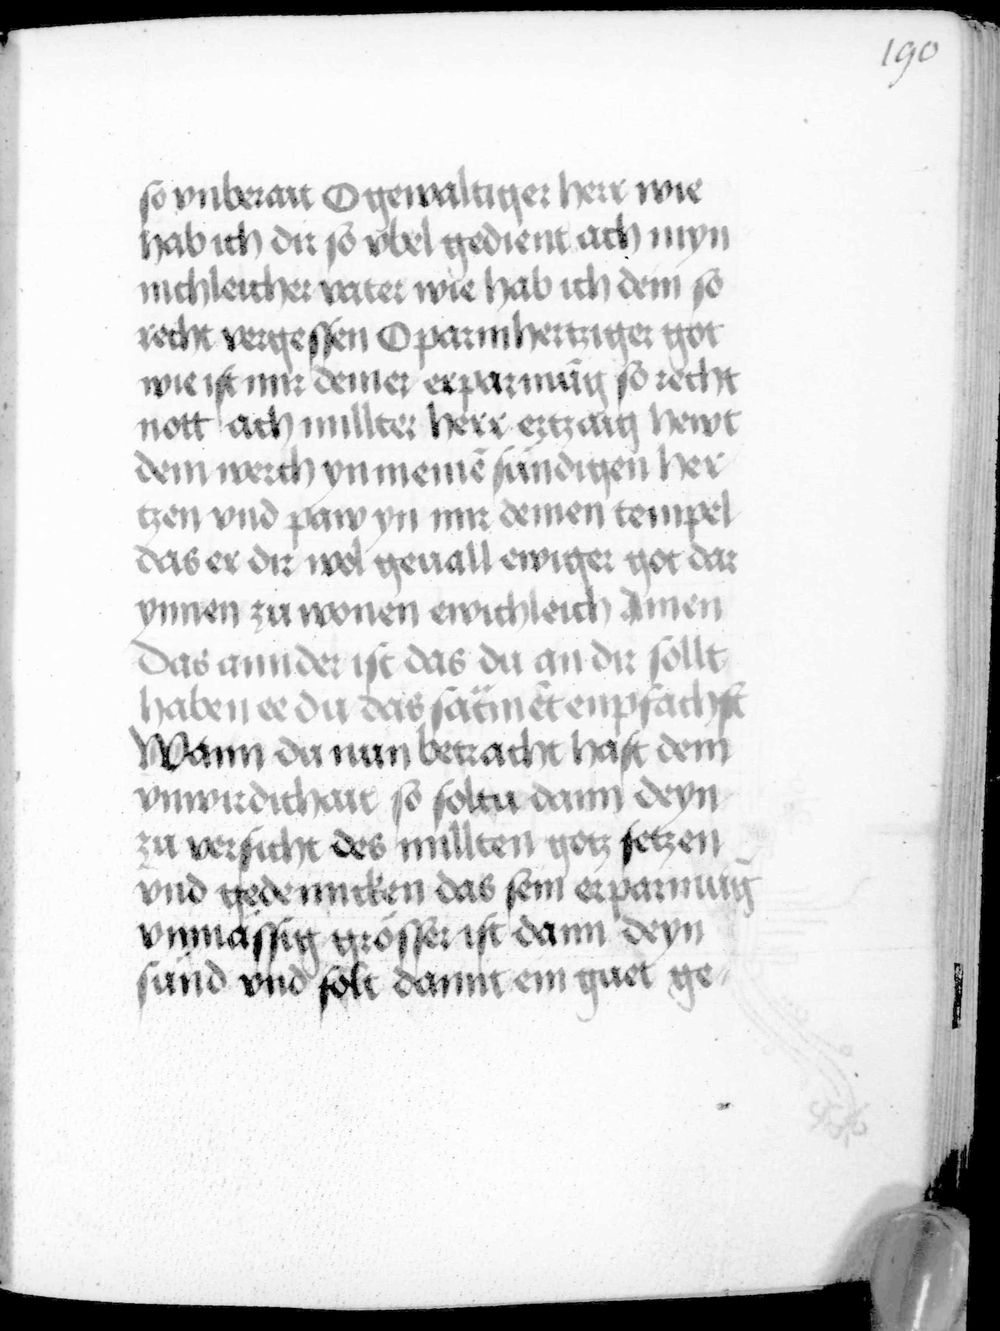 190
so vnberait O gewaltiger herr wie
hab ich dir so vbel gedient ach myn
michleicher vater wie hab ich dein so
recht vergessen O parmhertziger got
wie ist mir deiner erparmūg so recht
nott ach milter herr ertzaig hewt
dein werch yn meinē sündigen her
tzen vnd paw yn mir deinen tempel
das er dir wol geuall ewiger got dar
ynnen zu wonen ewichleich Amen
Das annder ist das du an dir sollt
haben ee du das sacmēt enpfachst
Wann du nun betracht hast dein
vnwirdichait so soltu dann deyn
zu versicht des millten gotz setzen
vnd gedenncken das sein erparmug̃
vnmässig grösser ist dann deyn
sünd vnd solt damit ein guet ge